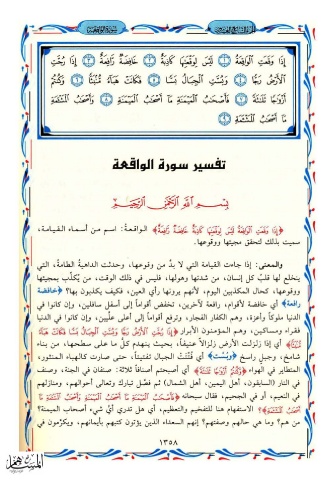 سورة الواقعة
إِذَا وَقَعَتِ الْوَاقِعَةُ ۝١ لَيْسَ لِوَقْعَتِهَا كَاذِبَةٌ ۝٢ خَافِضَةٌ رَّافِعَةٌ ۝٣ إِذَا رُجَّتِ
الْأَرْضُ رَجًّا ۝٤ وَبُسَّتِ الْجِبَالُ بَسًّا ۝٥ فَكَانَتْ هَبَاءً مُّنبَثًّا ۝٦ وَكُنتُمْ
أَزْوَاجًا ثَلَاثَةً ۝٧ فَأَصْحَابُ الْمَيْمَنَةِ مَا أَصْحَابُ الْمَيْمَنَةِ ۝٨ وَأَصْحَابُ الْمَشْأَمَةِ
مَا أَصْحَابُ الْمَشْأَمَةِ ۝٩
تفسير سورة الواقعة
بِسْمِ اللَّهِ الرَّحْمَٰنِ الرَّحِيمِ
﴿إِذَا وَقَعَتِ الْوَاقِعَةُ لَيْسَ لِوَقْعَتِهَا كَاذِبَةٌ خَافِضَةٌ رَّافِعَةٌ﴾ الواقعة: اسم من أسماء القيامة،
سميت بذلك لتحقق مجيئها ووقوعها.
والمعنى: إذا جاءت القيامة التي لا بدَّ من وقوعها، وحدثت الداهية الطامة، التي
ينخلع لها قلب كل إنسان، من شدتها وهولها، فليس في ذلك الوقت، من يكذّب بمجيئها
ووقوعها، كحال المكذبين اليوم، لأنهم يرونها رأي العين، فكيف يكذبون بها؟ ﴿خافضة
رافعة﴾ أي خافضة لأقوام، رافعة لآخرين، تخفض أقواماً إلى أسفل سافلين، وإن كانوا في
الدنيا ملوكاً وأعزة، وهم الكفار الفجار، وترفع أقواماً إلى أعلى علّيين، وإن كانوا في الدنيا
فقراء ومساكين، وهم المؤمنون الأبرار ﴿إِذَا رُجَّتِ الْأَرْضُ رَجًّا وَبُسَّتِ الْجِبَالُ بَسًّا فَكَانَتْ هَبَاءً
مُّنبَثًّا﴾ أي إذا زلزلت الأرض زلزالاً عنيفاً، بحيث ينهدم كلُّ ما على سطحها، من بناء
شامخ، وجبل راسخ ﴿وبُسَّت﴾ أي فُتِّتت الجبال تفتيتاً، حتى صارت كالهباء المنثور،
المتطاير في الهواء ﴿وَكُنتُمْ أَزْوَاجًا ثَلَاثَةً﴾ أي أصبحتم أصنافاً ثلاثة: صنفان في الجنة، وصنف
في النار (السابقون، أهل اليمين، أهل الشمال) ثم فصّل تبارك وتعالى أحوالهم، ومنازلهم
في النعيم، أو في الجحيم، فقال سبحانه ﴿فَأَصْحَابُ الْمَيْمَنَةِ مَا أَصْحَابُ الْمَيْمَنَةِ وَأَصْحَابُ الْمَشْأَمَةِ مَا
أَصْحَابُ الْمَشْأَمَةِ﴾؟ الاستفهام هنا للتفخيم والتعظيم، أي هل تدري أيُّ شيء أصحاب الميمنة؟
من هم؟ وما هي حالهم وصفتهم؟ إنهم السعداء الذين يؤتون كتبهم بأيمانهم، ويكرَّمون في
١٣٥٨